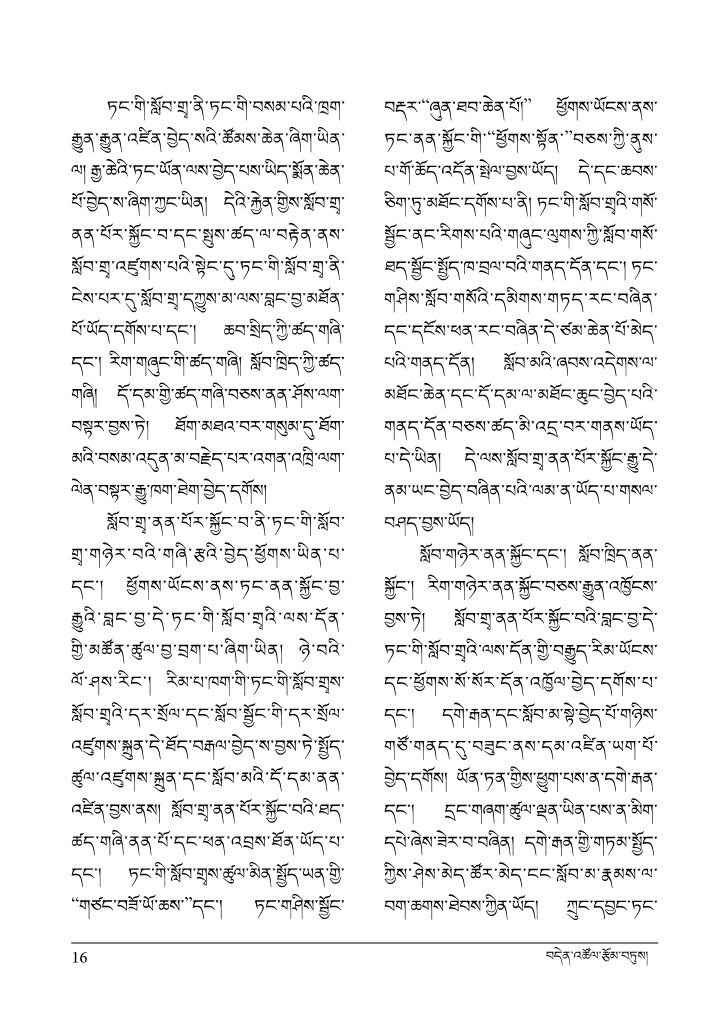 ཏང་གི་སློབ་གྲྭ་ནི་ཏང་གི་བསམ་པའི་ཁྲག་
རྒྱུན་རྒྱུན་འཛིན་བྱེད་སའི་ཚོམས་ཆེན་ཞིག་ཡིན་
ལ། རྒྱ་ཆེའི་ཏང་ཡོན་ལས་བྱེད་པས་ཡིད་སྨོན་ཆེན་
པོ་བྱེད་ས་ཞིག་ཀྱང་ཡིན། དེའི་རྐྱེན་གྱིས་སློབ་གྲྭ་
ནན་པོར་སྐྱོང་བ་དང་སྤུས་ཚད་ལ་བརྟེན་ནས་
སློབ་གྲྭ་འཛུགས་པའི་སྟེང་དུ་ཏང་གི་སློབ་གྲྭ་ནི་
ངེས་པར་དུ་སློབ་གྲྭ་དཀྱུས་མ་ལས་བླང་བྱ་མཐོན་
པོ་ཡོད་དགོས་པ་དང་། ཆབ་སྲིད་ཀྱི་ཚད་གཞི་
དང་། རིག་གཞུང་གི་ཚད་གཞི། སློབ་ཁྲིད་ཀྱི་ཚད་
གཞི། དོ་དམ་གྱི་ཚད་གཞི་བཅས་ནན་ཤོས་ལག་
བསྟར་བྱས་ཏེ། ཐོག་མཐའ་བར་གསུམ་དུ་ཐོག་
མའི་བསམ་འདུན་མ་བརྗེད་པར་འགན་འཁྲི་ལག་
ལེན་བསྟར་རྒྱུ་ཁག་ཐེག་བྱེད་དགོས།
སློབ་གྲྭ་ནན་པོར་སྐྱོང་བ་ནི་ཏང་གི་སློབ་
གྲྭ་གཉེར་བའི་གཞི་རྩའི་བྱེད་ཕྱོགས་ཡིན་པ་
དང་། ཕྱོགས་ཡོངས་ནས་ཏང་ནན་སྐྱོང་བྱ་
རྒྱུའི་བླང་བྱ་དེ་ཏང་གི་སློབ་གྲྭའི་ལས་དོན་
གྱི་མཚོན་ཚུལ་བྱ་བྲག་པ་ཞིག་ཡིན། ཉེ་བའི་
ལོ་ཤས་རིང་། རིམ་པ་ཁག་གི་ཏང་གི་སློབ་གྲྭས་
སློབ་གྲྭའི་དར་སྲོལ་དང་སློབ་སྦྱོང་གི་དར་སྲོལ་
འཛུགས་སྐྲུན་དེ་ཐོད་བརྒལ་བྱེད་ས་བྱས་ཏེ་སྤྱོད་
ཚུལ་འཛུགས་སྐྲུན་དང་སློབ་མའི་དོ་དམ་ནན་
འཛིན་བྱས་ནས། སློབ་གྲྭ་ནན་པོར་སྐྱོང་བའི་ཐད་
ཚད་གཞི་ནན་པོ་དང་ཕན་འབྲས་ཐོན་ཡོད་པ་
དང་། ཏང་གི་སློབ་གྲྭས་ཚུལ་མིན་སྤྱོད་ཡན་གྱི་
“གཙང་བཟོ་ཡོ་ཆས་”དང་། ཏང་གཤིས་སྦྱོང་
བརྡར་“ཞུན་ཐབ་ཆེན་པོ།” ཕྱོགས་ཡོངས་ནས་
ཏང་ནན་སྐྱོང་གི་“ཕྱོགས་སྟོན་”བཅས་ཀྱི་ནུས་
པ་གོ་ཆོད་འདོན་སྤེལ་བྱས་ཡོད། དེ་དང་ཆབས་
ཅིག་ཏུ་མཐོང་དགོས་པ་ནི། ཏང་གི་སློབ་གྲྭའི་གསོ་
སྦྱོང་ནང་རིགས་པའི་གཞུང་ལུགས་ཀྱི་སློབ་གསོ་
ཐད་སྦྱོང་སྤྱོད་ཁ་བྲལ་བའི་གནད་དོན་དང་། ཏང་
གཤིས་སློབ་གསོའི་དམིགས་གཏད་རང་བཞིན་
དང་དངོས་ཕན་རང་བཞིན་དེ་ཙམ་ཆེན་པོ་མེད་
པའི་གནད་དོན། སློབ་མའི་ཞབས་འདེགས་ལ་
མཐོང་ཆེན་དང་དོ་དམ་ལ་མཐོང་ཆུང་བྱེད་པའི་
གནད་དོན་བཅས་ཚད་མི་འདྲ་བར་གནས་ཡོད་
པ་དེ་ཡིན། དེ་ལས་སློབ་གྲྭ་ནན་པོར་སྐྱོང་རྒྱུ་དེ་
ནམ་ཡང་བྱེད་བཞིན་པའི་ལམ་ན་ཡོད་པ་གསལ་
བཤད་བྱས་ཡོད།
སློབ་གཉེར་ནན་སྐྱོང་དང་། སློབ་ཁྲིད་ནན་
སྐྱོང་། རིག་གཉེར་ནན་སྐྱོང་བཅས་རྒྱུན་འཁྱོངས་
བྱས་ཏེ། སློབ་གྲྭ་ནན་པོར་སྐྱོང་བའི་བླང་བྱ་དེ་
ཏང་གི་སློབ་གྲྭའི་ལས་དོན་གྱི་བརྒྱུད་རིམ་ཡོངས་
དང་ཕྱོགས་སོ་སོར་དོན་འཁྱོལ་བྱེད་དགོས་པ་
དང་། དགེ་རྒན་དང་སློབ་མ་སྟེ་བྱེད་པོ་གཉིས་
གཙོ་གནད་དུ་བཟུང་ནས་དམ་འཛིན་ཡག་པོ་
བྱེད་དགོས། ཡོན་ཏན་གྱིས་ཕྱུག་པས་ན་དགེ་རྒན་
དང་། དྲང་གཞག་ཚུལ་ལྡན་ཡིན་པས་ན་མིག་
དཔེ་ཞེས་ཟེར་བ་བཞིན། དགེ་རྒན་གྱི་གཏམ་སྤྱོད་
ཀྱིས་ཤེས་མེད་ཚོར་མེད་ངང་སློབ་མ་རྣམས་ལ་
བག་ཆགས་ཐེབས་ཀྱིན་ཡོད། ཀྲུང་དབྱང་ཏང་
16
བདེན་འཚོལ་རྩོམ་བཏུས།